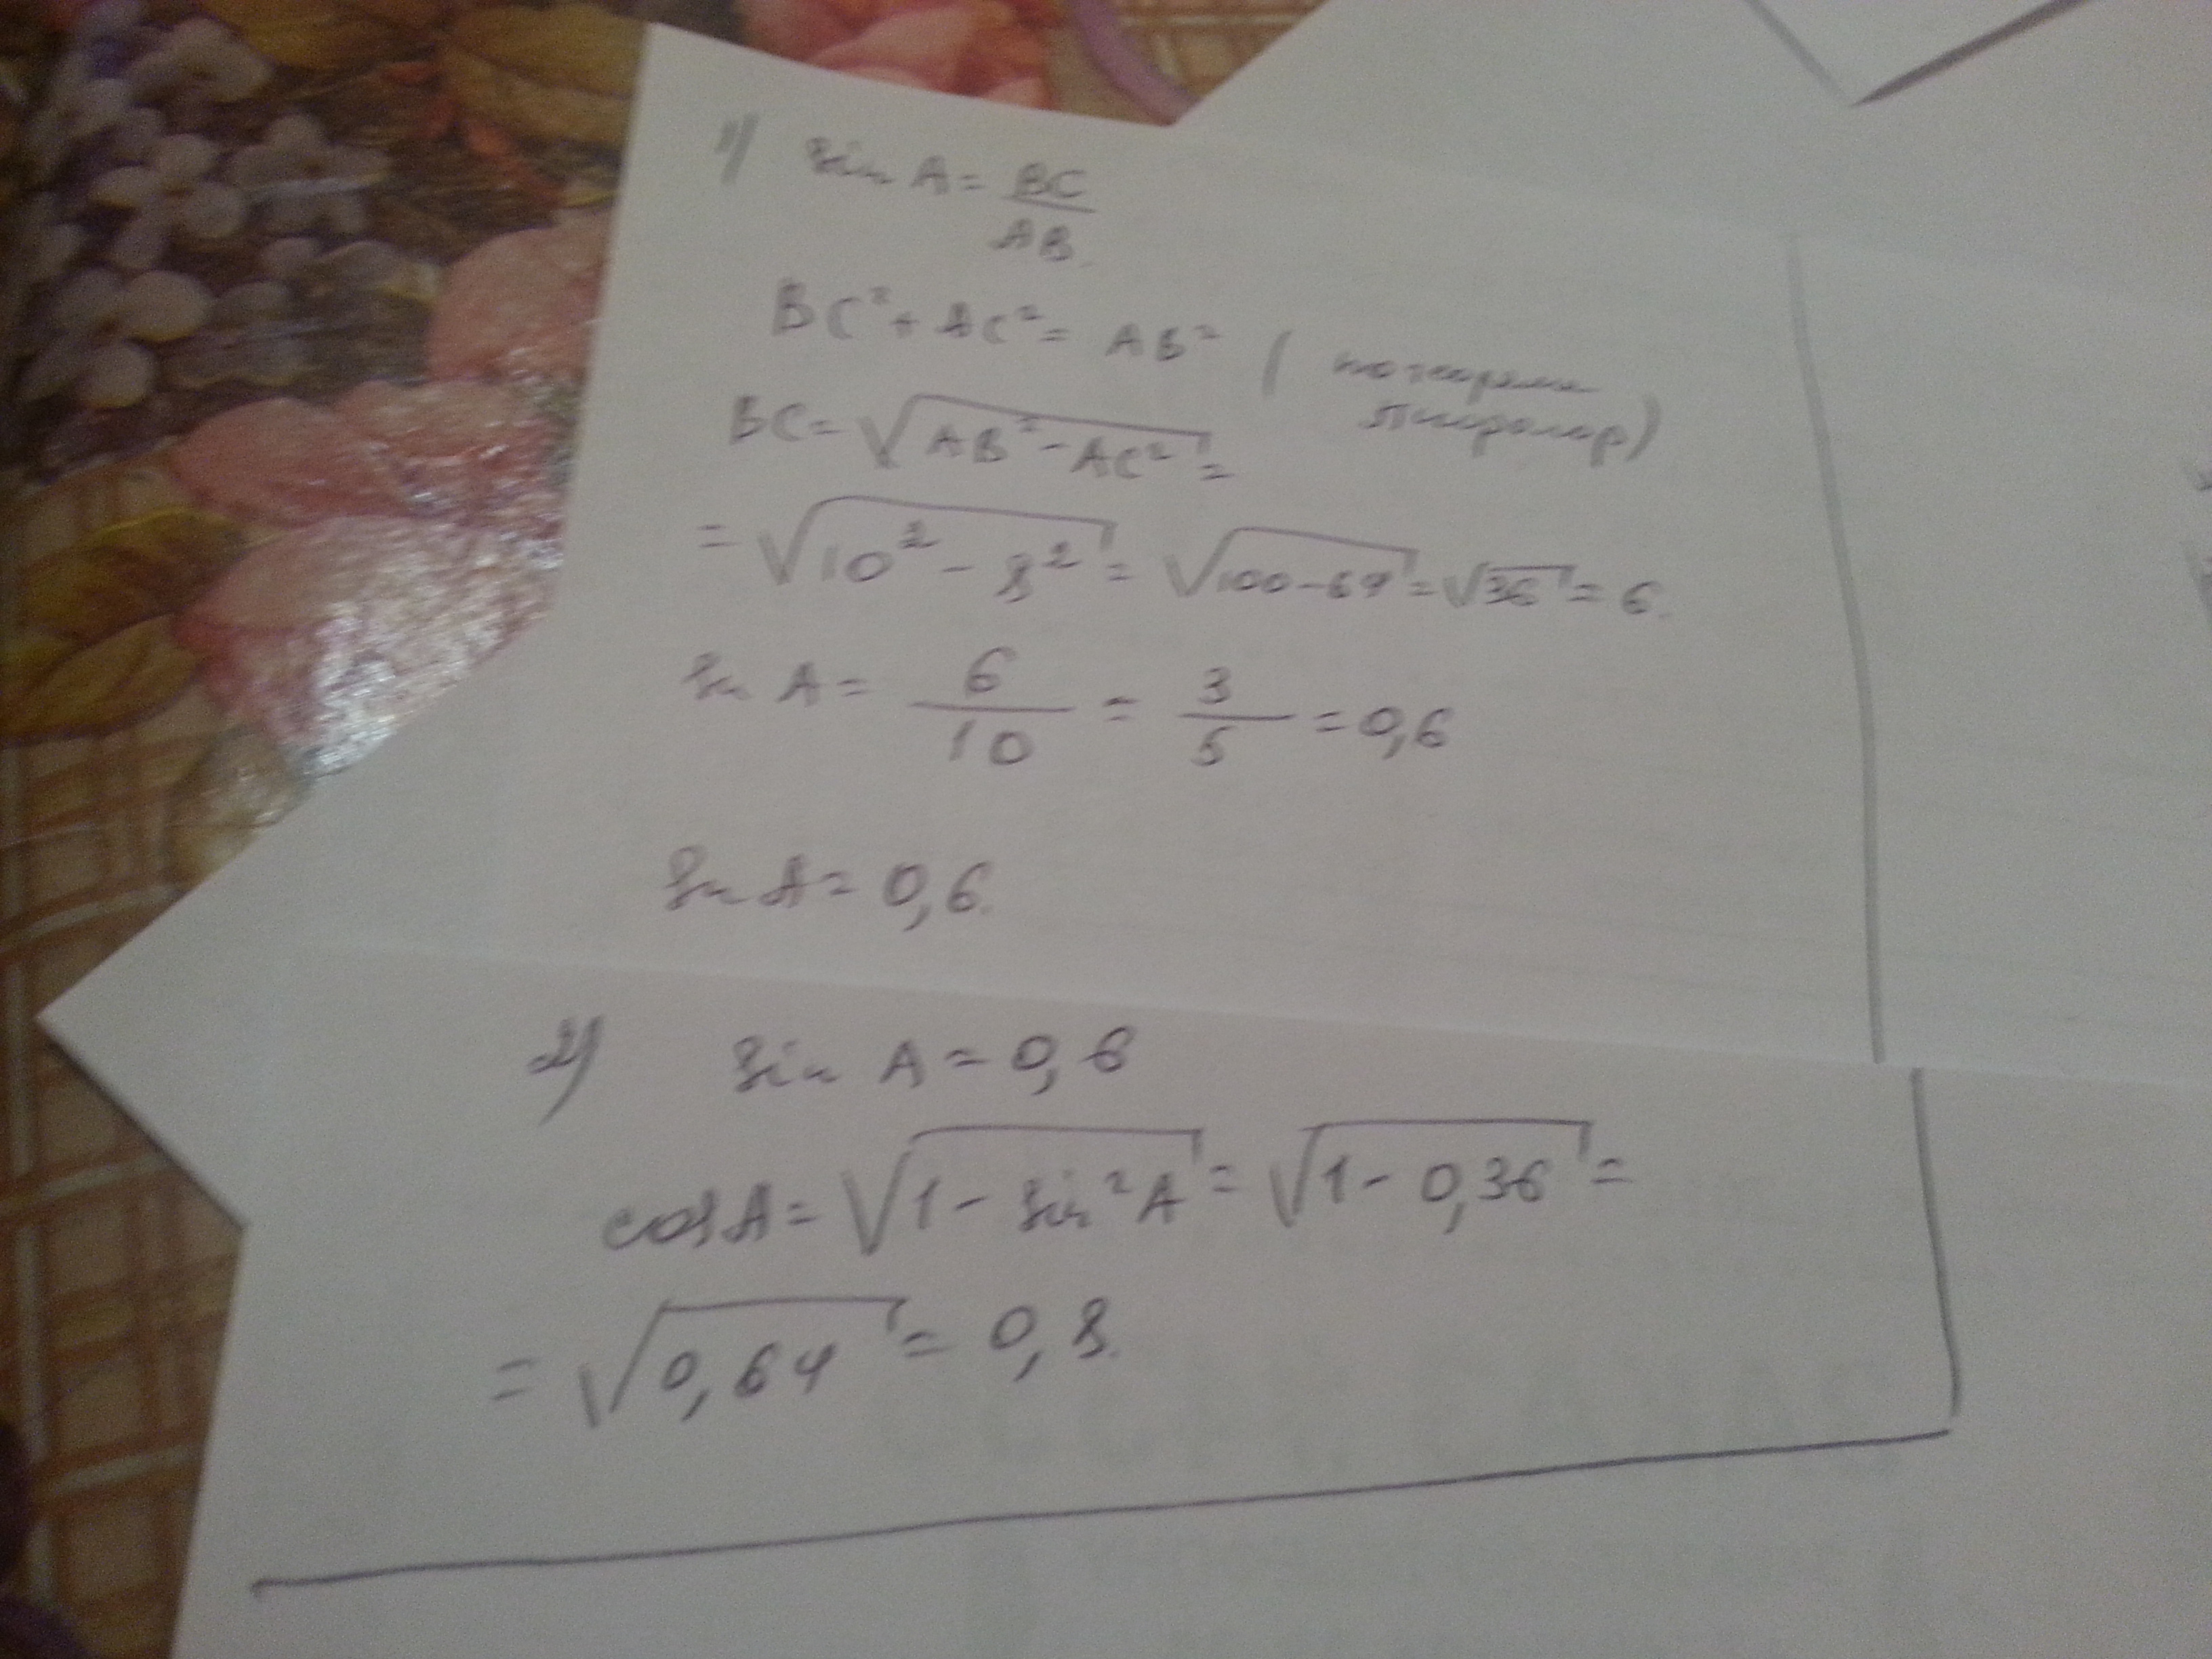 1) sin A = BC/AB.
BC² + AC² = AB² (по теореме
Пифагора)
BC = √(AB² - AC²) =
= √(10² - 8²) = √(100-64) = √36 = 6.
sin A = 6/10 = 3/5 = 0,6
sin A = 0,6.
2) sin A = 0,6
cos A = √(1 - sin²A) = √(1 - 0,36) =
= √0,64 = 0,8.